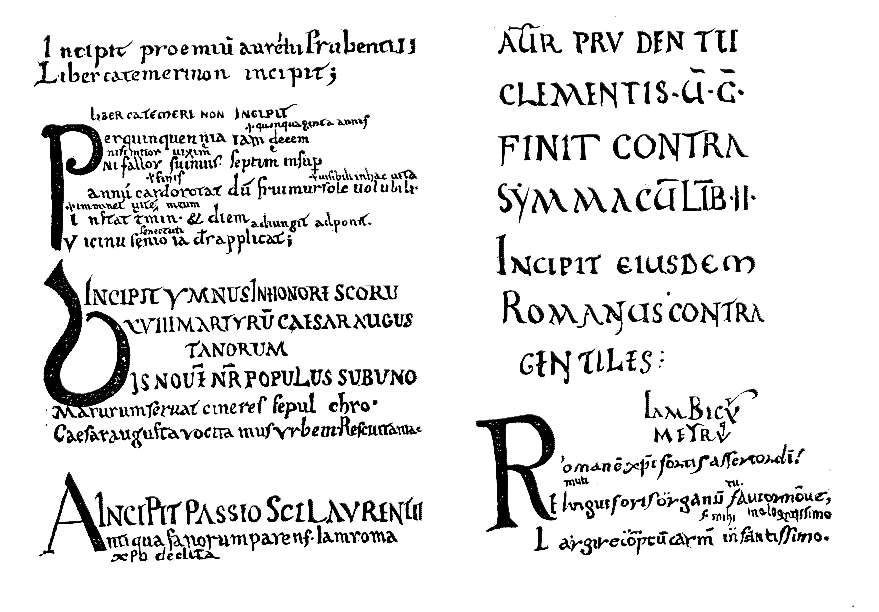 Incipit proemiū aurelii Prudentii
Liber catemerinon incipit;
LIBER CATEMERI NON INCIPIT
quinquaginta annis
Per quinquennia iam decem
Ni fallor fuimus septim insup
annū cardo rotat dū fruimur sole volubili.
Instat tmin. & diem
adiungit adponit.
senectuti
vicinū senio ia dr applicat;
INCIPIT YMNUS IN HONORE SCORU
XVIII MARTYRŪ CAESARAUGUS
TANORUM
BIS NOUĒ NR̄ POPULUS SUB UNO
Martirum seruat cineres sepul chro.
Caesaraugusta vocita mus vrbem
INCIPIT PASSIO SCI LAVRENTII
Antiqua fanorum parens. Iam roma
xpō dedita
AŪR PRV DEN TII
CLEMENTIS·Ū·C̄·
FINIT CONTRA
SYMMACŪ LIB̄·II·
INCIPIT EIUSDEM
ROMANUS CONTRA
GENTILES:
IAMBICV
METRV
Romane xp̄i fortis assertor dī!
Elinguis oris organū fautor moue,
f mihi
Largire cōptū carm̄ infantissimo.